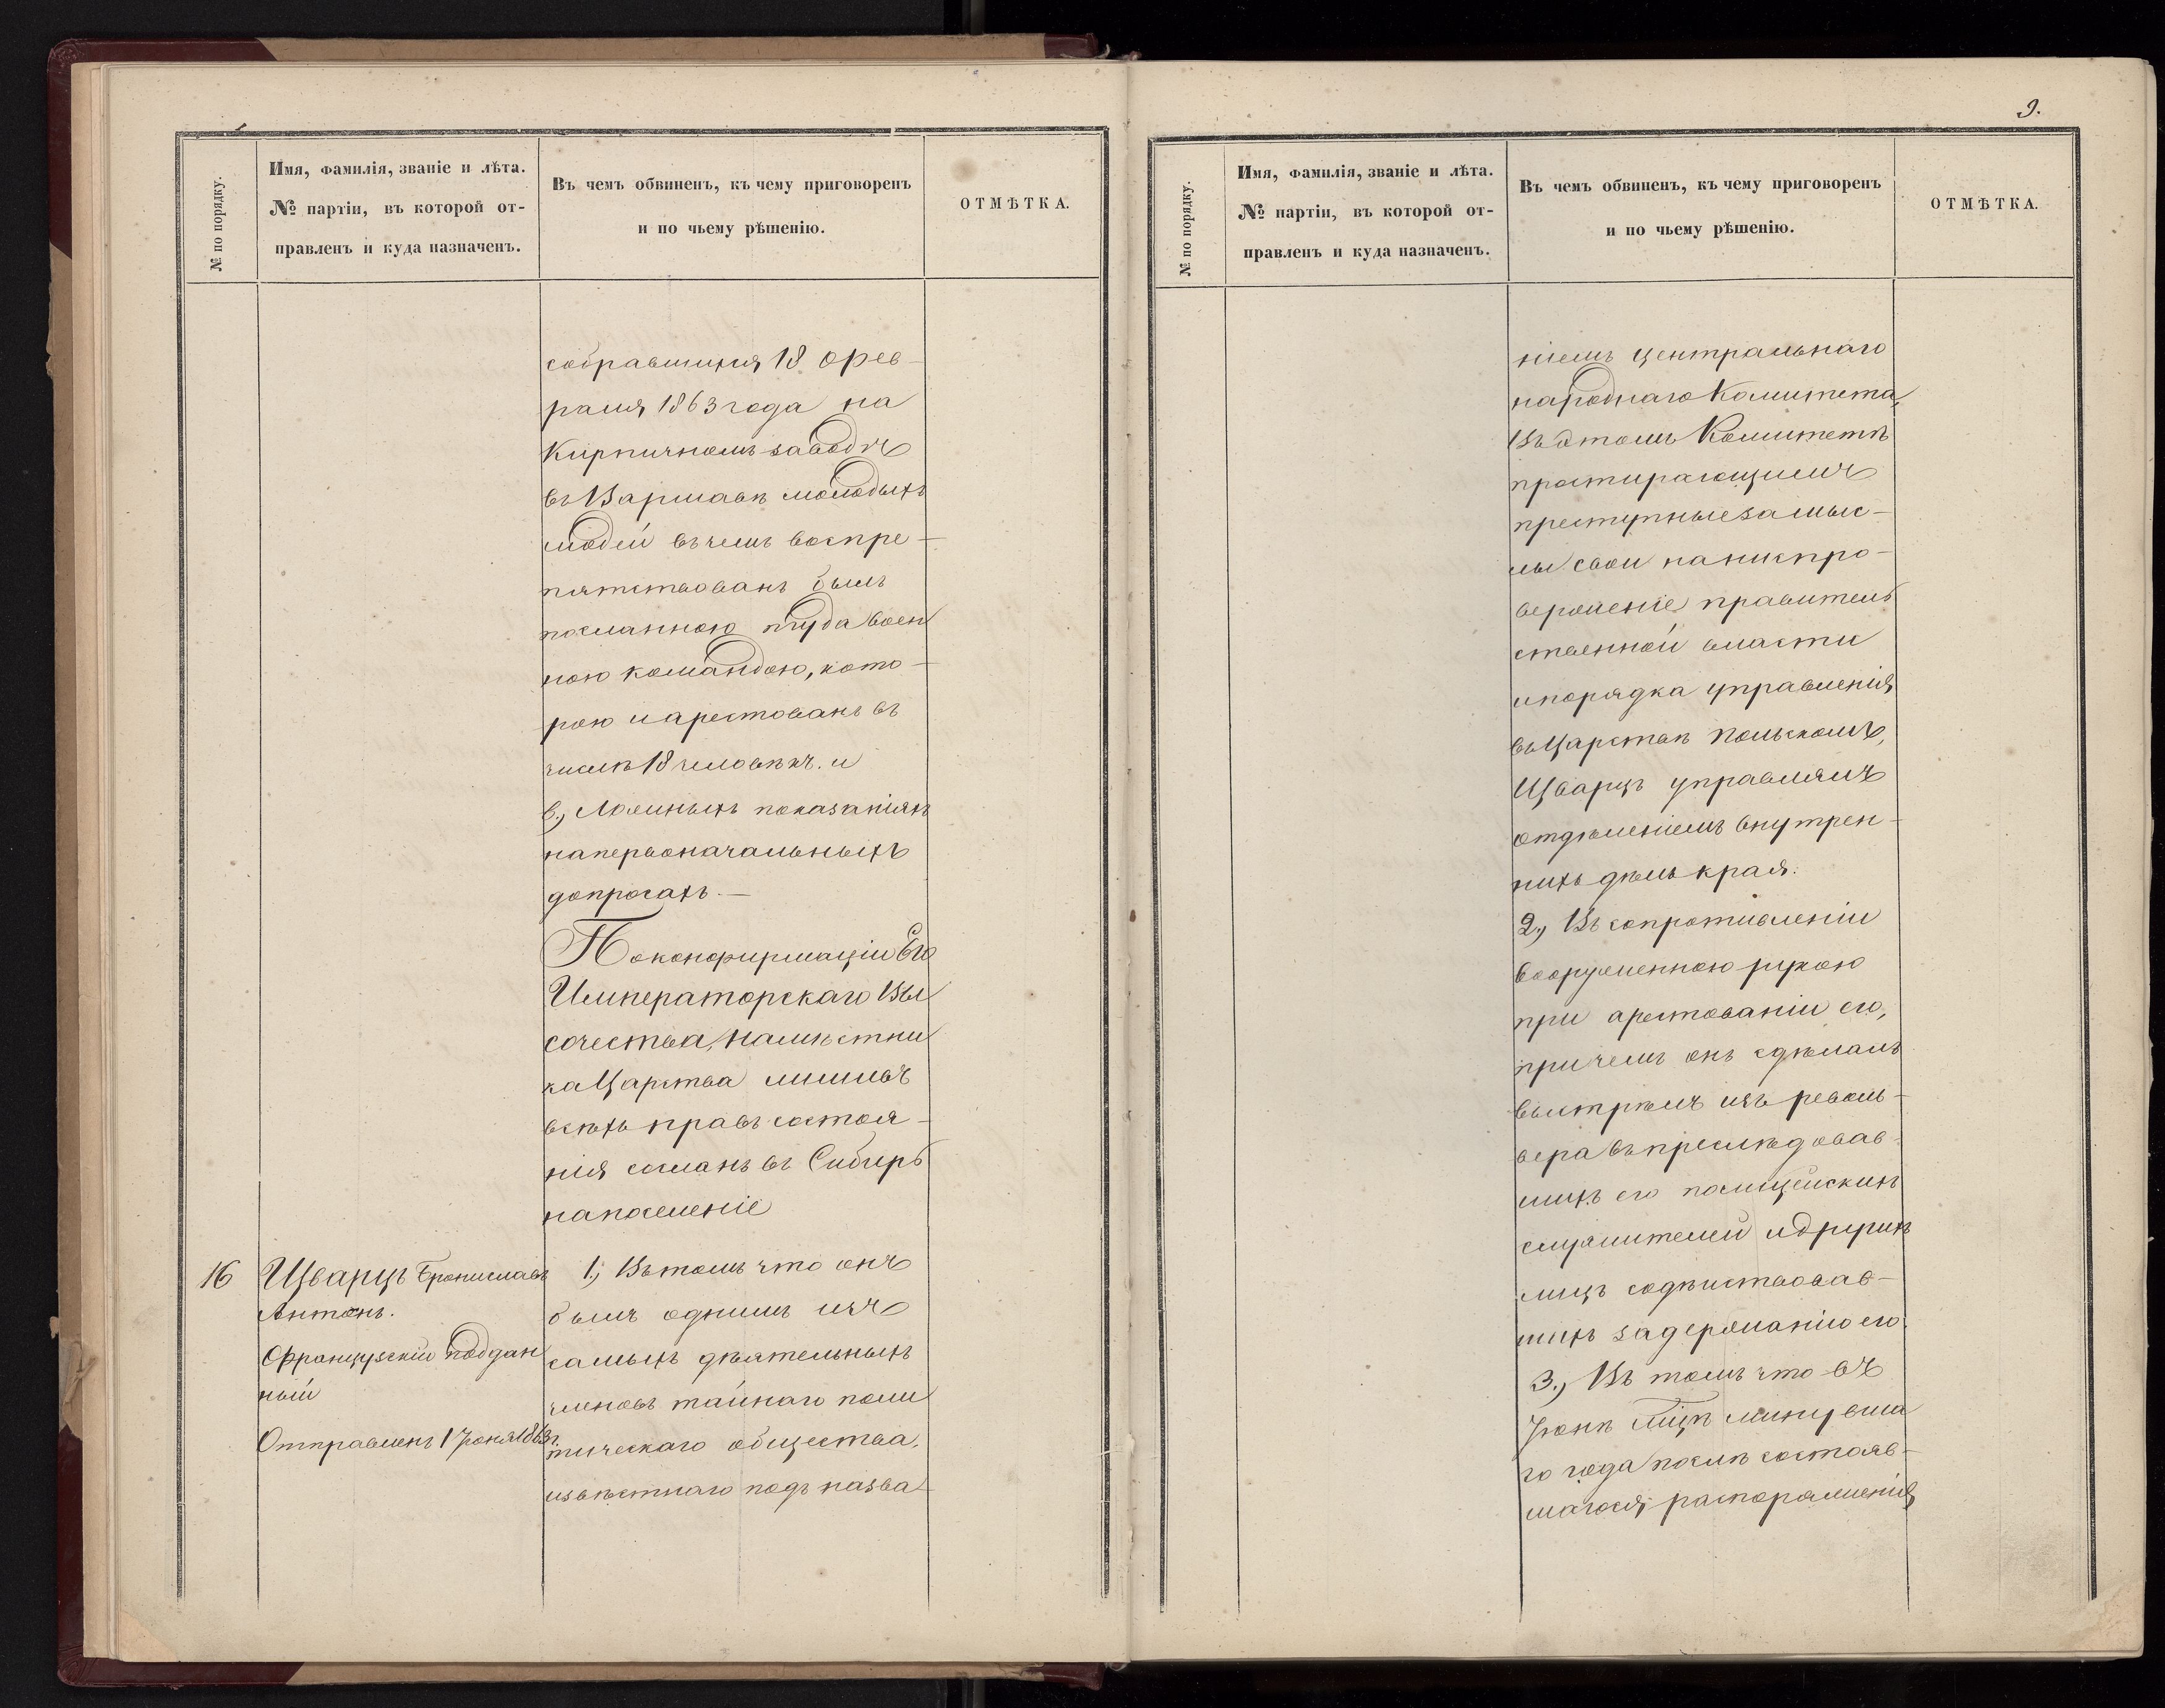 № по порядку.
Имя, фамилія, званіе и лѣта.
№ партіи, въ которой от-
правленъ и куда назначенъ.
Въ чемъ обвиненъ, къ чему приговоренъ
и по чьему рѣшенію.
ОТМѢТКА.
собравшихся 18 Фев-
раля 1863 года на
Кирпичномъ заводѣ
въ Варшавѣ молодыхъ
людей въ чемъ воспре-
пятствованъ былъ
посланною туда воен
ною командою, кото-
рою и арестованъ въ
числѣ 18 человѣкъ. и
в., Ложныхъ показаніяхъ
на первоначальныхъ
допросахъ. —
По конфирмаціи Его
Императорскаго Вы
сочества, Намѣстни
ка Царства лишивъ
всѣхъ правъ состоя-
нія сосланъ въ Сибирь
на поселеніе
16
Шварцъ Брониславъ
Антонъ.
Французскій поддан
ный
Отправленъ 1 Іюня 1863 г.
1., Въ томъ что онъ
былъ однимъ изъ
самыхъ дѣятельныхъ
членовъ тайнаго поли
тическаго общества,
извѣстнаго подъ назва-
9.
№ по порядку.
Имя, фамилія, званіе и лѣта.
№ партіи, въ которой от-
правленъ и куда назначенъ.
Въ чемъ обвиненъ, къ чему приговоренъ
и по чьему рѣшенію.
ОТМѢТКА.
ніемъ центральнаго
народнаго Комитета,
Въ этомъ Комитетѣ
простирающимъ
преступные замыс-
лы свои на ниспро-
верженіе правитель
ственной власти
и порядка управленія
въ Царствѣ Польскомъ,
Шварцъ управлялъ
отдѣленіемъ внутрен-
нихъ дѣлъ края.
2., Въ сопротивленіи
вооруженною рукою
при арестованіи его,
причемъ онъ сдѣлалъ
выстрѣлъ изъ револь-
вера въ преслѣдовав-
шихъ его полицейскихъ
служителей и другихъ
лицъ содѣйствовав-
шихъ задержанію его.
3., Въ томъ что въ
Іюнѣ м-цѣ минувша
го года послѣ состояв-
шагося распоряженія